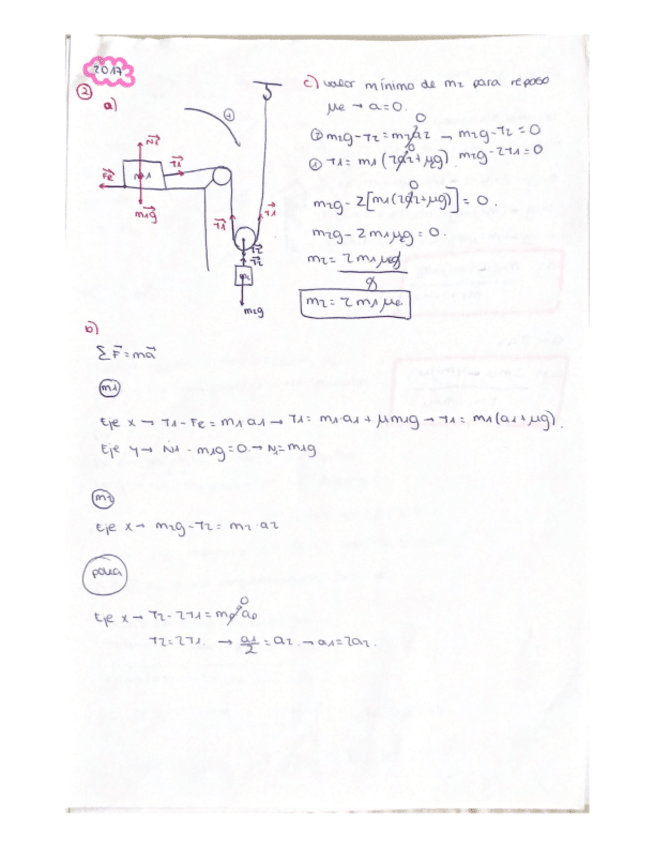 2017
② a)
N₁
Fr m1 T₁
m₁g
T₁ T₁
T₂
T₂
m₂g
c) valor mínimo de m₂ para reposo
μe → a=0.
② m₂g-T₂=m₂a₂ 0 → m₂g-T₂=0
① T₁=m₁(2a₂+μg) 0 m₂g-2T₁=0
m₂g-2[m₁(2a₂+μg)]=0. 0
m₂g-2m₁μg=0.
m₂=2m₁μeg/g
m₂=2m₁μe
b)
ΣF=ma
m1
Eje x → T₁-Fr=m₁a₁ → T₁=m₁a₁+μm₁g → T₁=m₁(a₁+μg).
Eje y → N₁-m₁g=0 → N₁=m₁g
m2
Eje x → m₂g-T₂=m₂·a₂
polea
Eje x → T₂-2T₁=mpap 0
T₂=2T₁. → a₁/2=a₂. → a₁=2a₂.